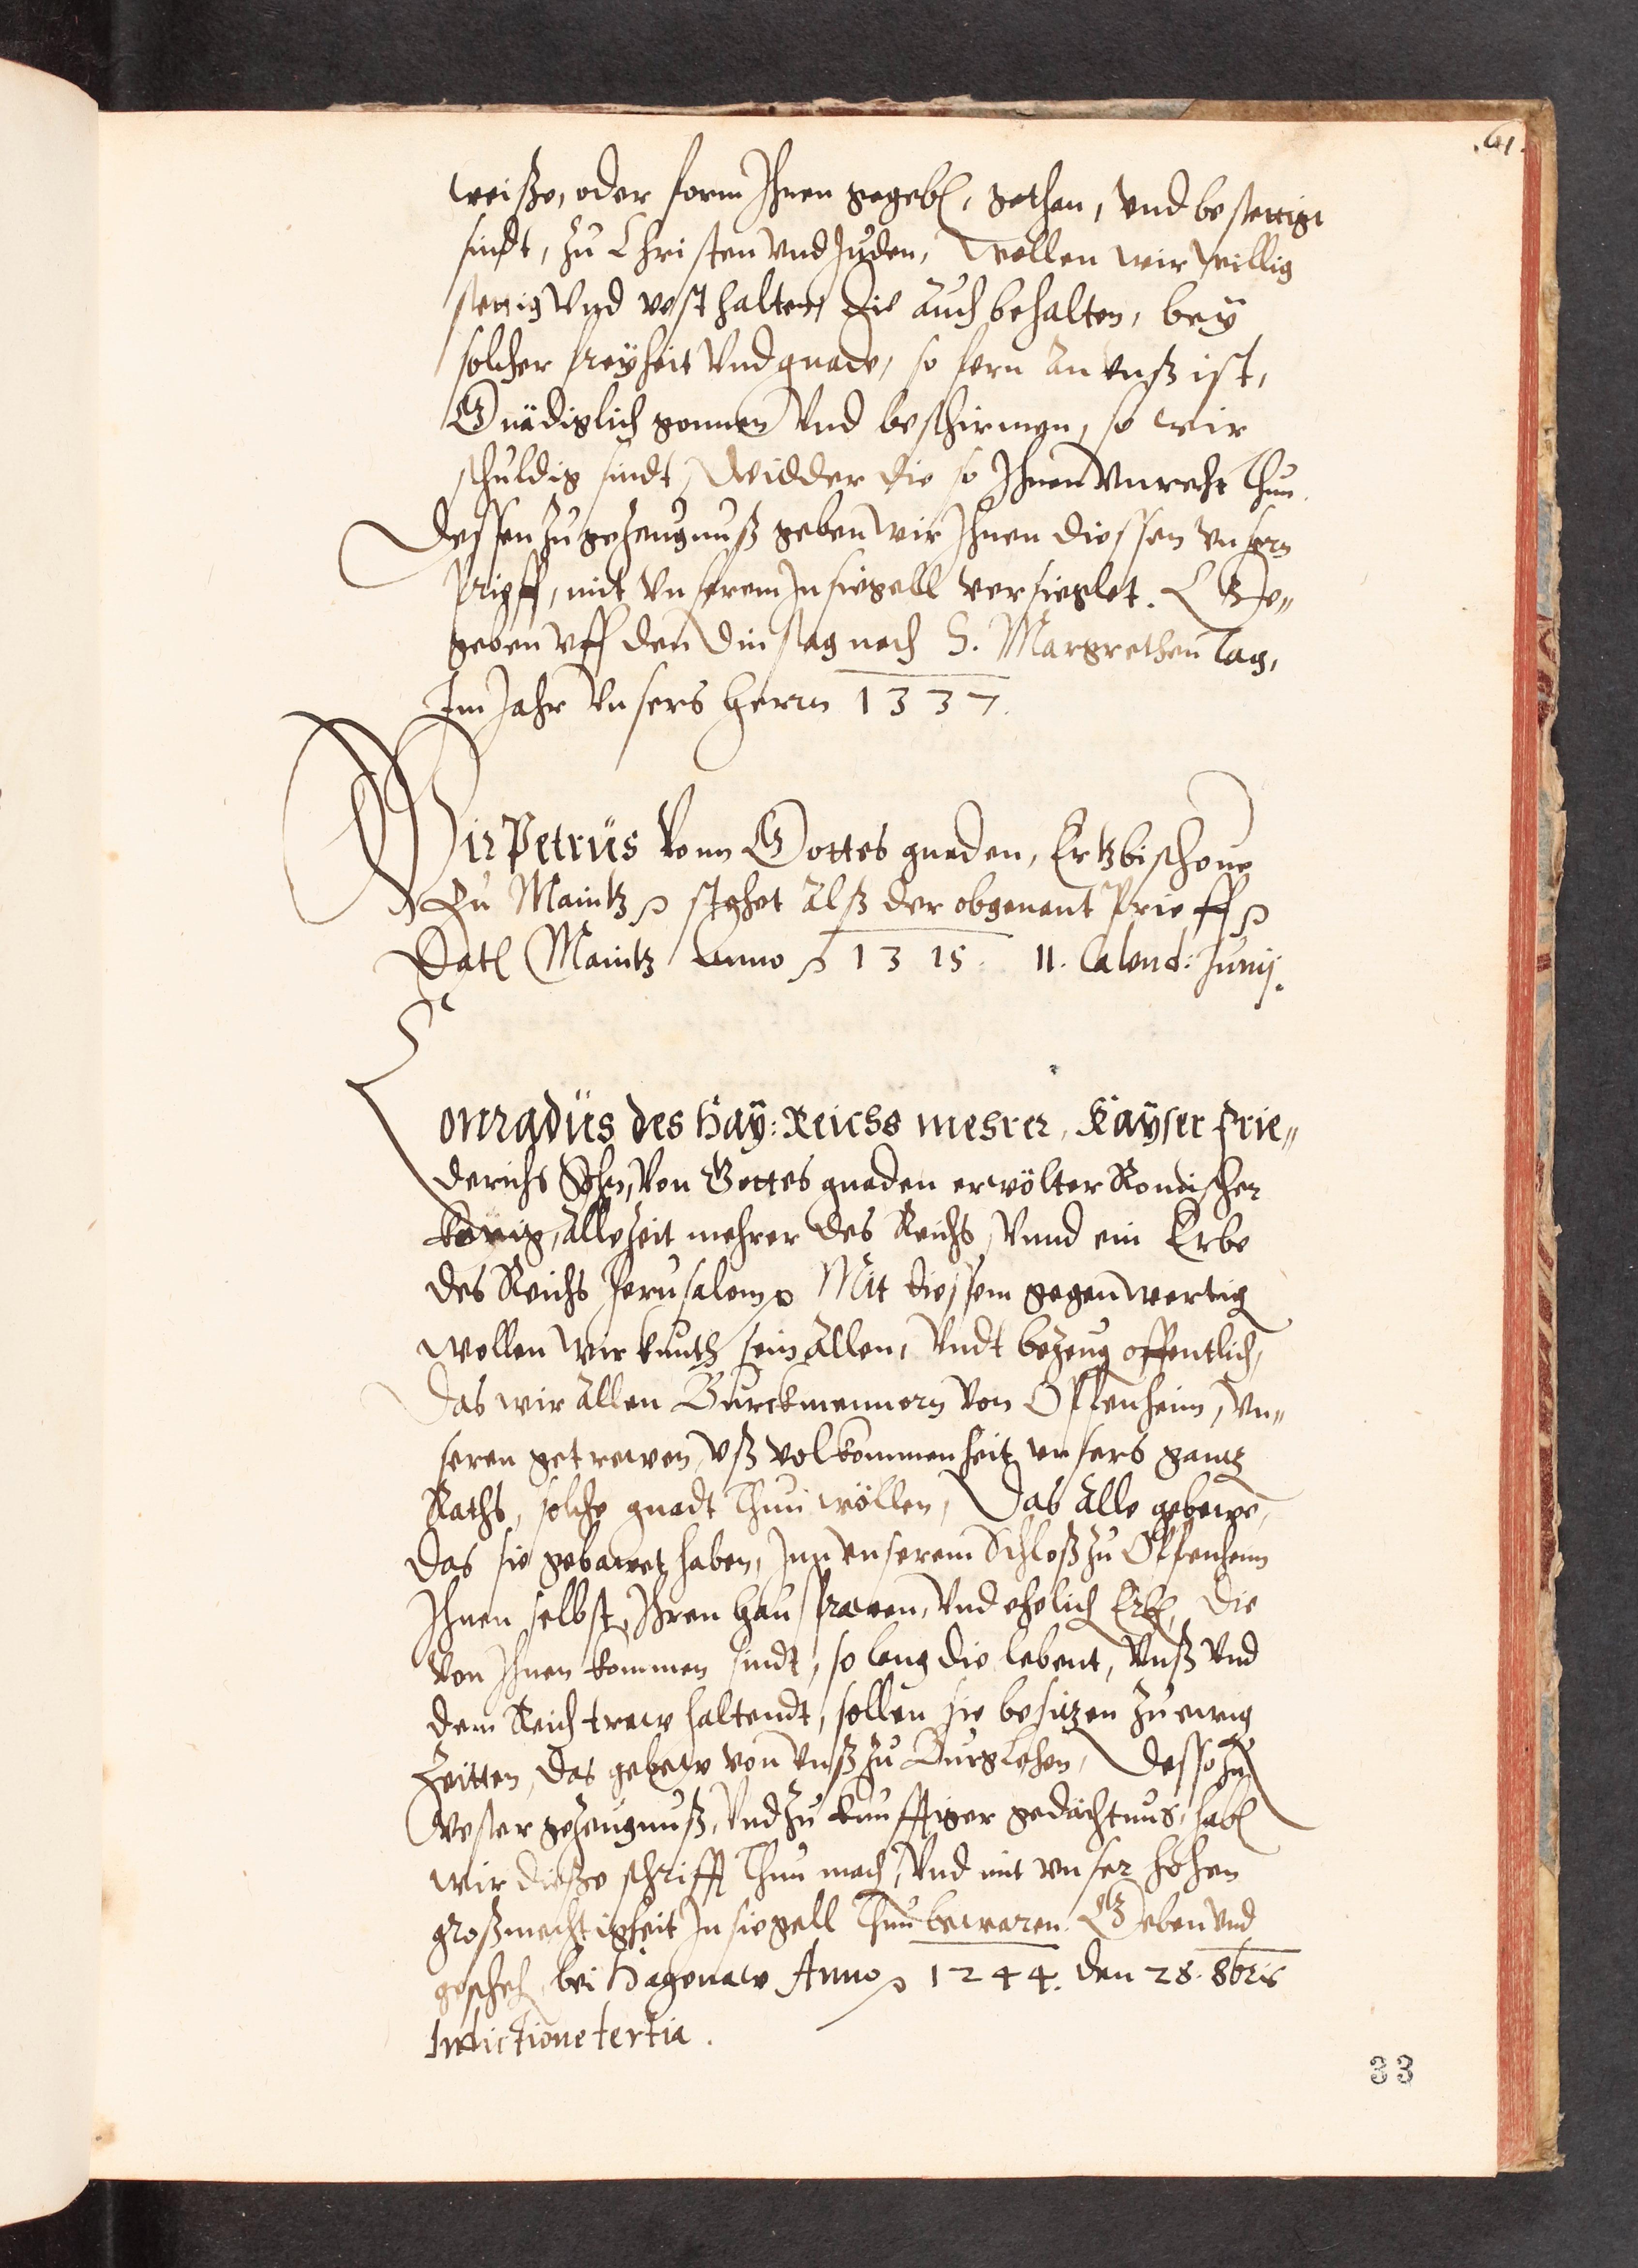 .61.
weiße, oder form Ihnen gegeb, gethan, vnd bestettigt
sindt, zu Christen vnd Juden, wollen wir willig
stettig vnd vest halten, die auch behalten, bey
solcher freyheit vnd gnade, so fern an vnß ist,
Gnädiglich gonnen vnd beschirmen, so wir
schuldig sindt, widder die so Ihnen vnrecht thun.
Dessen zu gezeugnuß geben wir Ihnen diessen vnsern
Prieff, mit vnserem Insiegell versieglet. Ge„
geben vff den dinstag nach S. Margrethen tag,
Im Jahr vnsers herrn 1337.
Wir Petrus vonn Gottes gnaden, Ertzbischoue
Zu Maintz stehet alß der obgenant Prieff
Dat Maintz Anno 1315. 11. Calend: Junij.
Conradüs des Hay: Reichs mehrer, Kayser Frie„
derichs Sohn, von Gottes gnaden erwölter Romischer
König, allezeit mehrer des Reichs, vnnd ein Erbe
des Reichs Jerusalem Mit diessem gegenwertig
wollen wir kunth sein allen, vndt bezeug offentlich,
Das wir allen Burckmennern von Oppenheim, vn„
seren getrewen, vß volkommenheit vnsers gantz
Raths, solche gnadt thun wöllen, Das alle gebewe,
das sie gebawet haben, Inn vnserem Schloß zu Oppenheim
Ihnen selbst, Ihren haußfrawen, vnd ehelich Erb, die
von Ihnen kommen sindt, so lang die lebent, vnß vnd
dem Reich trew haltendt, sollen sie besitzen zu ewig
Zeitten, das gebew von vnß zu Burglehen, Desso zu
vester gezeugnuß, vnd zu kunfftiger gedächtnus, hab
wir dieße schrifft thun mach, vnd mit vnser hohen
großmechtigheit Insiegell thun bewaren. Geben vnd
gescheh, bei Hagenaw Anno 1244. den 28. 8bris
Indictione tertia.
33